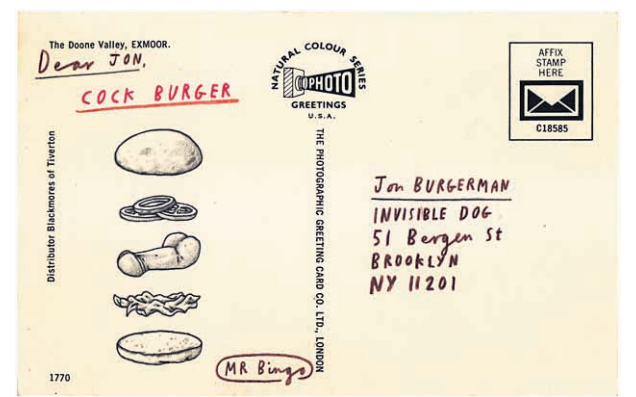 The Doone Valley, EXMOOR.
Dear JON,
COCK BURGER
Distributor Blackmores of Tiverton
1770
NATURAL COLOUR SERIES
PHOTO
GREETINGS
U.S.A.
THE PHOTOGRAPHIC GREETING CARD CO. LTD., LONDON
MR Bingo
AFFIX
STAMP
HERE
C18585
Jon BURGERMAN
INVISIBLE DOG
51 Bergen St
BROOKLYN
NY 11201